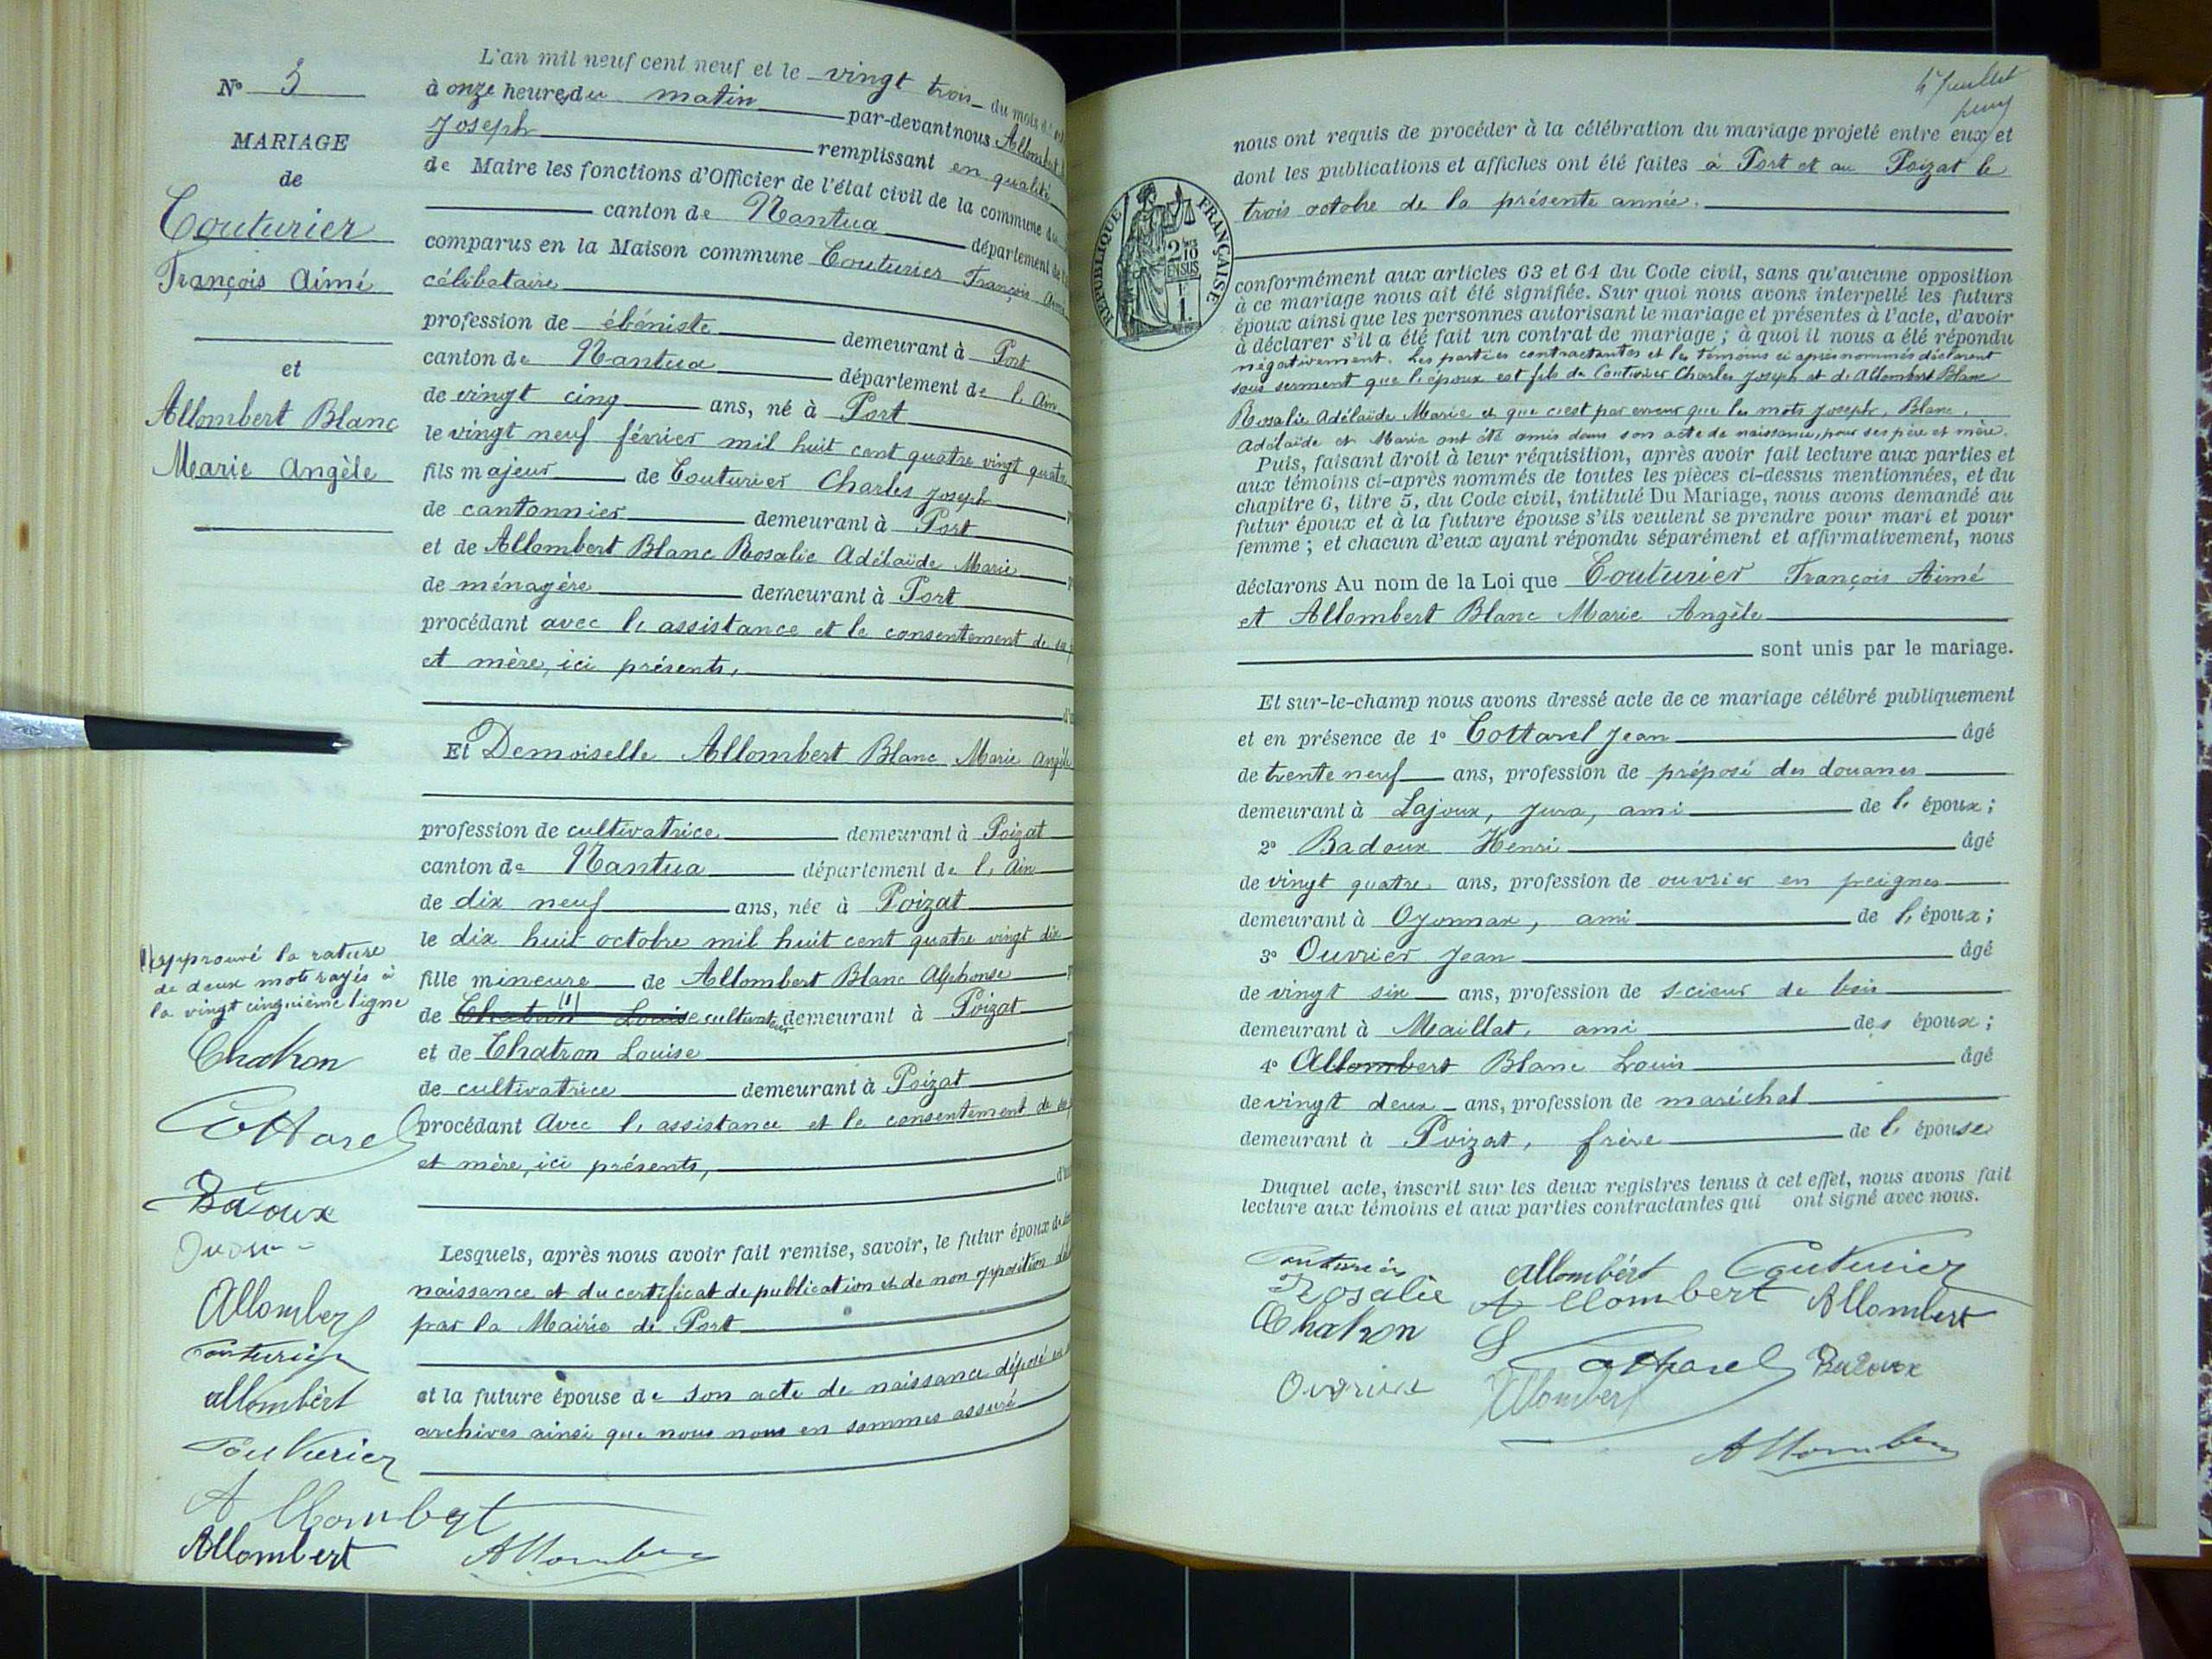 N° 5
MARIAGE
de
Couturier
François Aimé
et
Allombert Blanc
Marie Angèle
(1) approuvé la rature
de deux mots rayés à
la vingt cinquième ligne
Chatron
Cottarel
Badoux
Allombert
Couturier
allombert
Couturier
Allombert
Allombert
Allombert
L'an mil neuf cent neuf et le vingt trois du mois d'
à onze heures du matin par-devant nous Allombert
Joseph remplissant en qualité
de Maire les fonctions d'Officier de l'état civil de la commune du
canton de Nantua département de
comparus en la Maison commune Couturier François Aimé
célibataire
profession de ébéniste demeurant à Port
canton de Nantua département de l'Ain
de vingt cinq ans, né à Port
le vingt neuf février mil huit cent quatre vingt quatre
fils majeur de Couturier Charles Joseph
de cantonnier demeurant à Port
et de Allombert Blanc Rosalie Adélaïde Marie
de ménagère demeurant à Port
procédant avec l'assistance et le consentement de
et mère, ici présents,
Et Demoiselle Allombert Blanc Marie Angèle
profession de cultivatrice demeurant à Poizat
canton de Nantua département de l'Ain
de dix neuf ans, née à Poizat
le dix huit octobre mil huit cent quatre vingt dix
fille mineure de Allombert Blanc Alphonse
de Chatron Louise (1) cultivateur demeurant à Poizat
et de Chatron Louise
de cultivatrice demeurant à Poizat
procédant avec l'assistance et le consentement de
et mère, ici présents,
Lesquels, après nous avoir fait remise, savoir, le futur époux de
naissance et du certificat de publication et de non opposition
par la Mairie de Port
et la future épouse de son acte de naissance déposé
archives ainsi que nous nous en sommes assuré
nous ont requis de procéder à la célébration du mariage projeté entre eux et
dont les publications et affiches ont été faites à Port et au Poizat le
trois octobre de la présente année.
RÉPUBLIQUE FRANÇAISE
2/10 EN SUS
1 F.
conformément aux articles 63 et 64 du Code civil, sans qu'aucune opposition
à ce mariage nous ait été signifiée. Sur quoi nous avons interpellé les futurs
époux ainsi que les personnes autorisant le mariage et présentes à l'acte, d'avoir
à déclarer s'il a été fait un contrat de mariage ; à quoi il nous a été répondu
négativement. Les parties contractantes et les témoins ci après nommés déclarent
sous serment que l'époux est fils de Couturier Charles Joseph et de Allombert Blanc
Rosalie Adélaïde Marie et que c'est par erreur que les mots Joseph, Blanc,
Adélaïde et Marie ont été omis dans son acte de naissance, pour ses père et mère.
Puis, faisant droit à leur réquisition, après avoir fait lecture aux parties et
aux témoins ci-après nommés de toutes les pièces ci-dessus mentionnées, et du
chapitre 6, titre 5, du Code civil, intitulé Du Mariage, nous avons demandé au
futur époux et à la future épouse s'ils veulent se prendre pour mari et pour
femme ; et chacun d'eux ayant répondu séparément et affirmativement, nous
déclarons Au nom de la Loi que Couturier François Aimé
et Allombert Blanc Marie Angèle
sont unis par le mariage.
Et sur-le-champ nous avons dressé acte de ce mariage célébré publiquement
et en présence de 1° Cottarel Jean âgé
de trente neuf ans, profession de préposé des douanes
demeurant à Lajoux, Jura, ami de l'époux ;
2° Badoux Henri âgé
de vingt quatre ans, profession de ouvrier en peignes
demeurant à Oyonnax, ami de l'époux ;
3° Ouvrier Jean âgé
de vingt six ans, profession de scieur de bois
demeurant à Maillat, ami des époux ;
4° Allombert Blanc Louis âgé
de vingt deux ans, profession de maréchal
demeurant à Poizat, frère de l'épouse
Duquel acte, inscrit sur les deux registres tenus à cet effet, nous avons fait
lecture aux témoins et aux parties contractantes qui ont signé avec nous.
Couturier allombert Couturier
Rosalie Allombert Allombert
Chatron L Cottarel Badoux
Ouvrier Allombert
Allombert